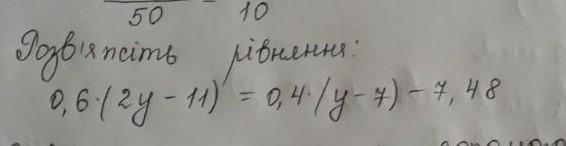 50 - 10
Розв'яжіть рівняння:
0,6·(2y - 11) = 0,4·(y - 7) - 7,48